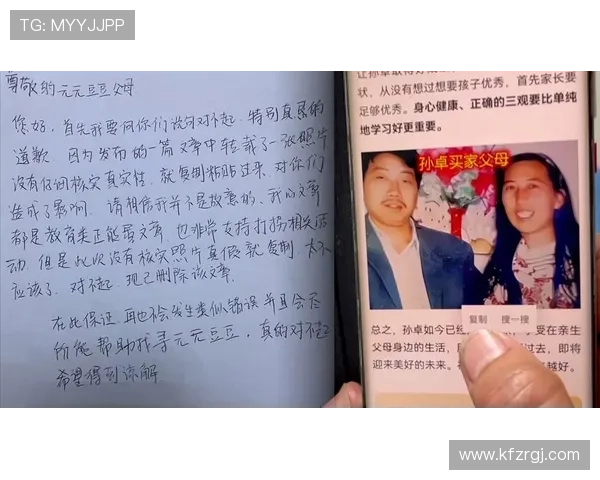 TG: MYYJJPP
尊敬的元元豆豆父母
您好，首先我要向你们说句对不起，特别真恳的
道歉，因为发布的一篇文章中转载了一张照片
没有仔细核实真实性，就复制粘贴过来，对你们
造成了影响，请相信我并不是故意的，我的文章
都是教育类正能量文章，也非常支持打拐相关活
动，但是此次没有核实照片真假就复制，太不
应该了，对不起，现已删除该文章
在此保证，再也不会发生类似错误并且会尽
所能帮助找寻元元豆豆，真的对不起
希望得到谅解
让孙卓取得好成
状，从没有想过想要孩子优秀，首先家长要
足够优秀。身心健康、正确的三观要比单纯
地学习好更重要。
孙卓买家父母
复制 搜一搜
总之，孙卓如今已经 享受在亲生
父母身边的生活， 过去，即将
迎来美好的未来。 越好。
www.kfzrgj.com